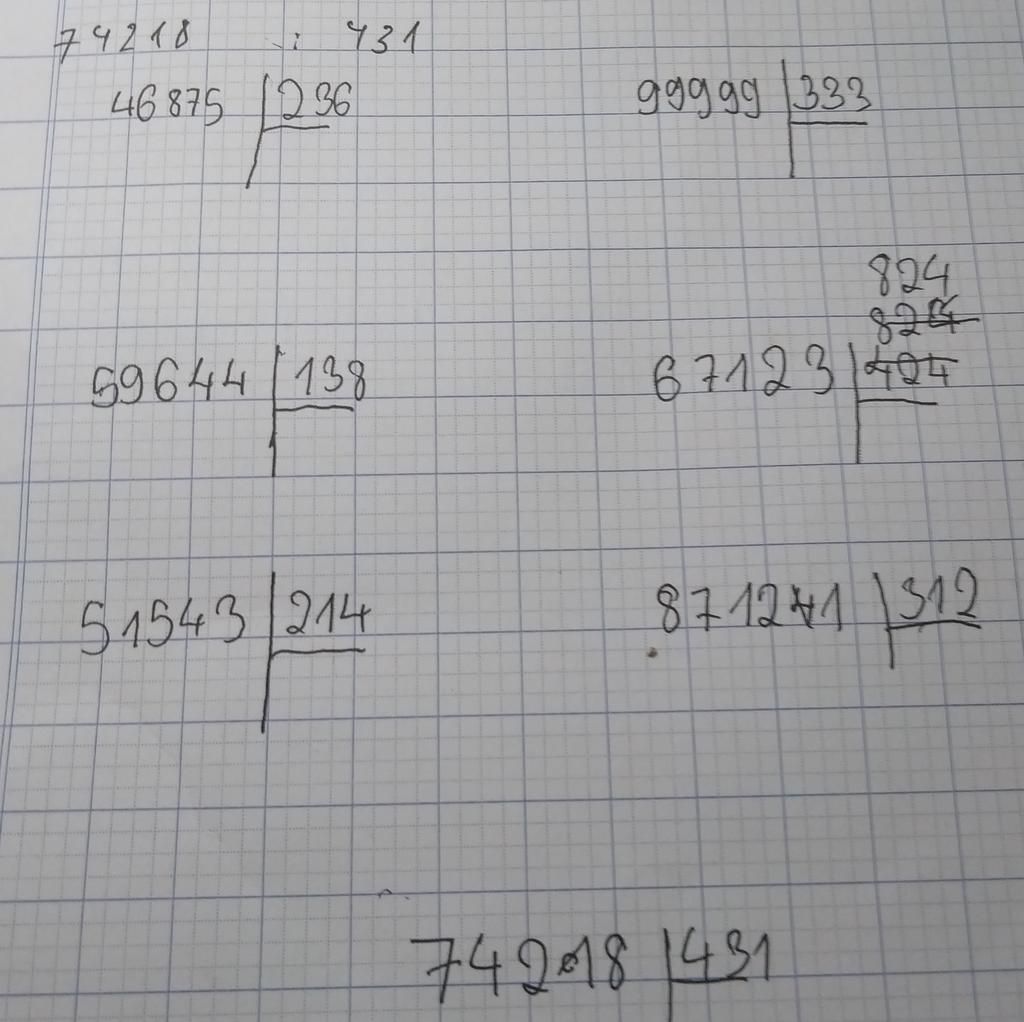 74218 : 431
46875 236
99999 333
824
824
59644 138
67123 424
51543 214
871241 312
74218 431